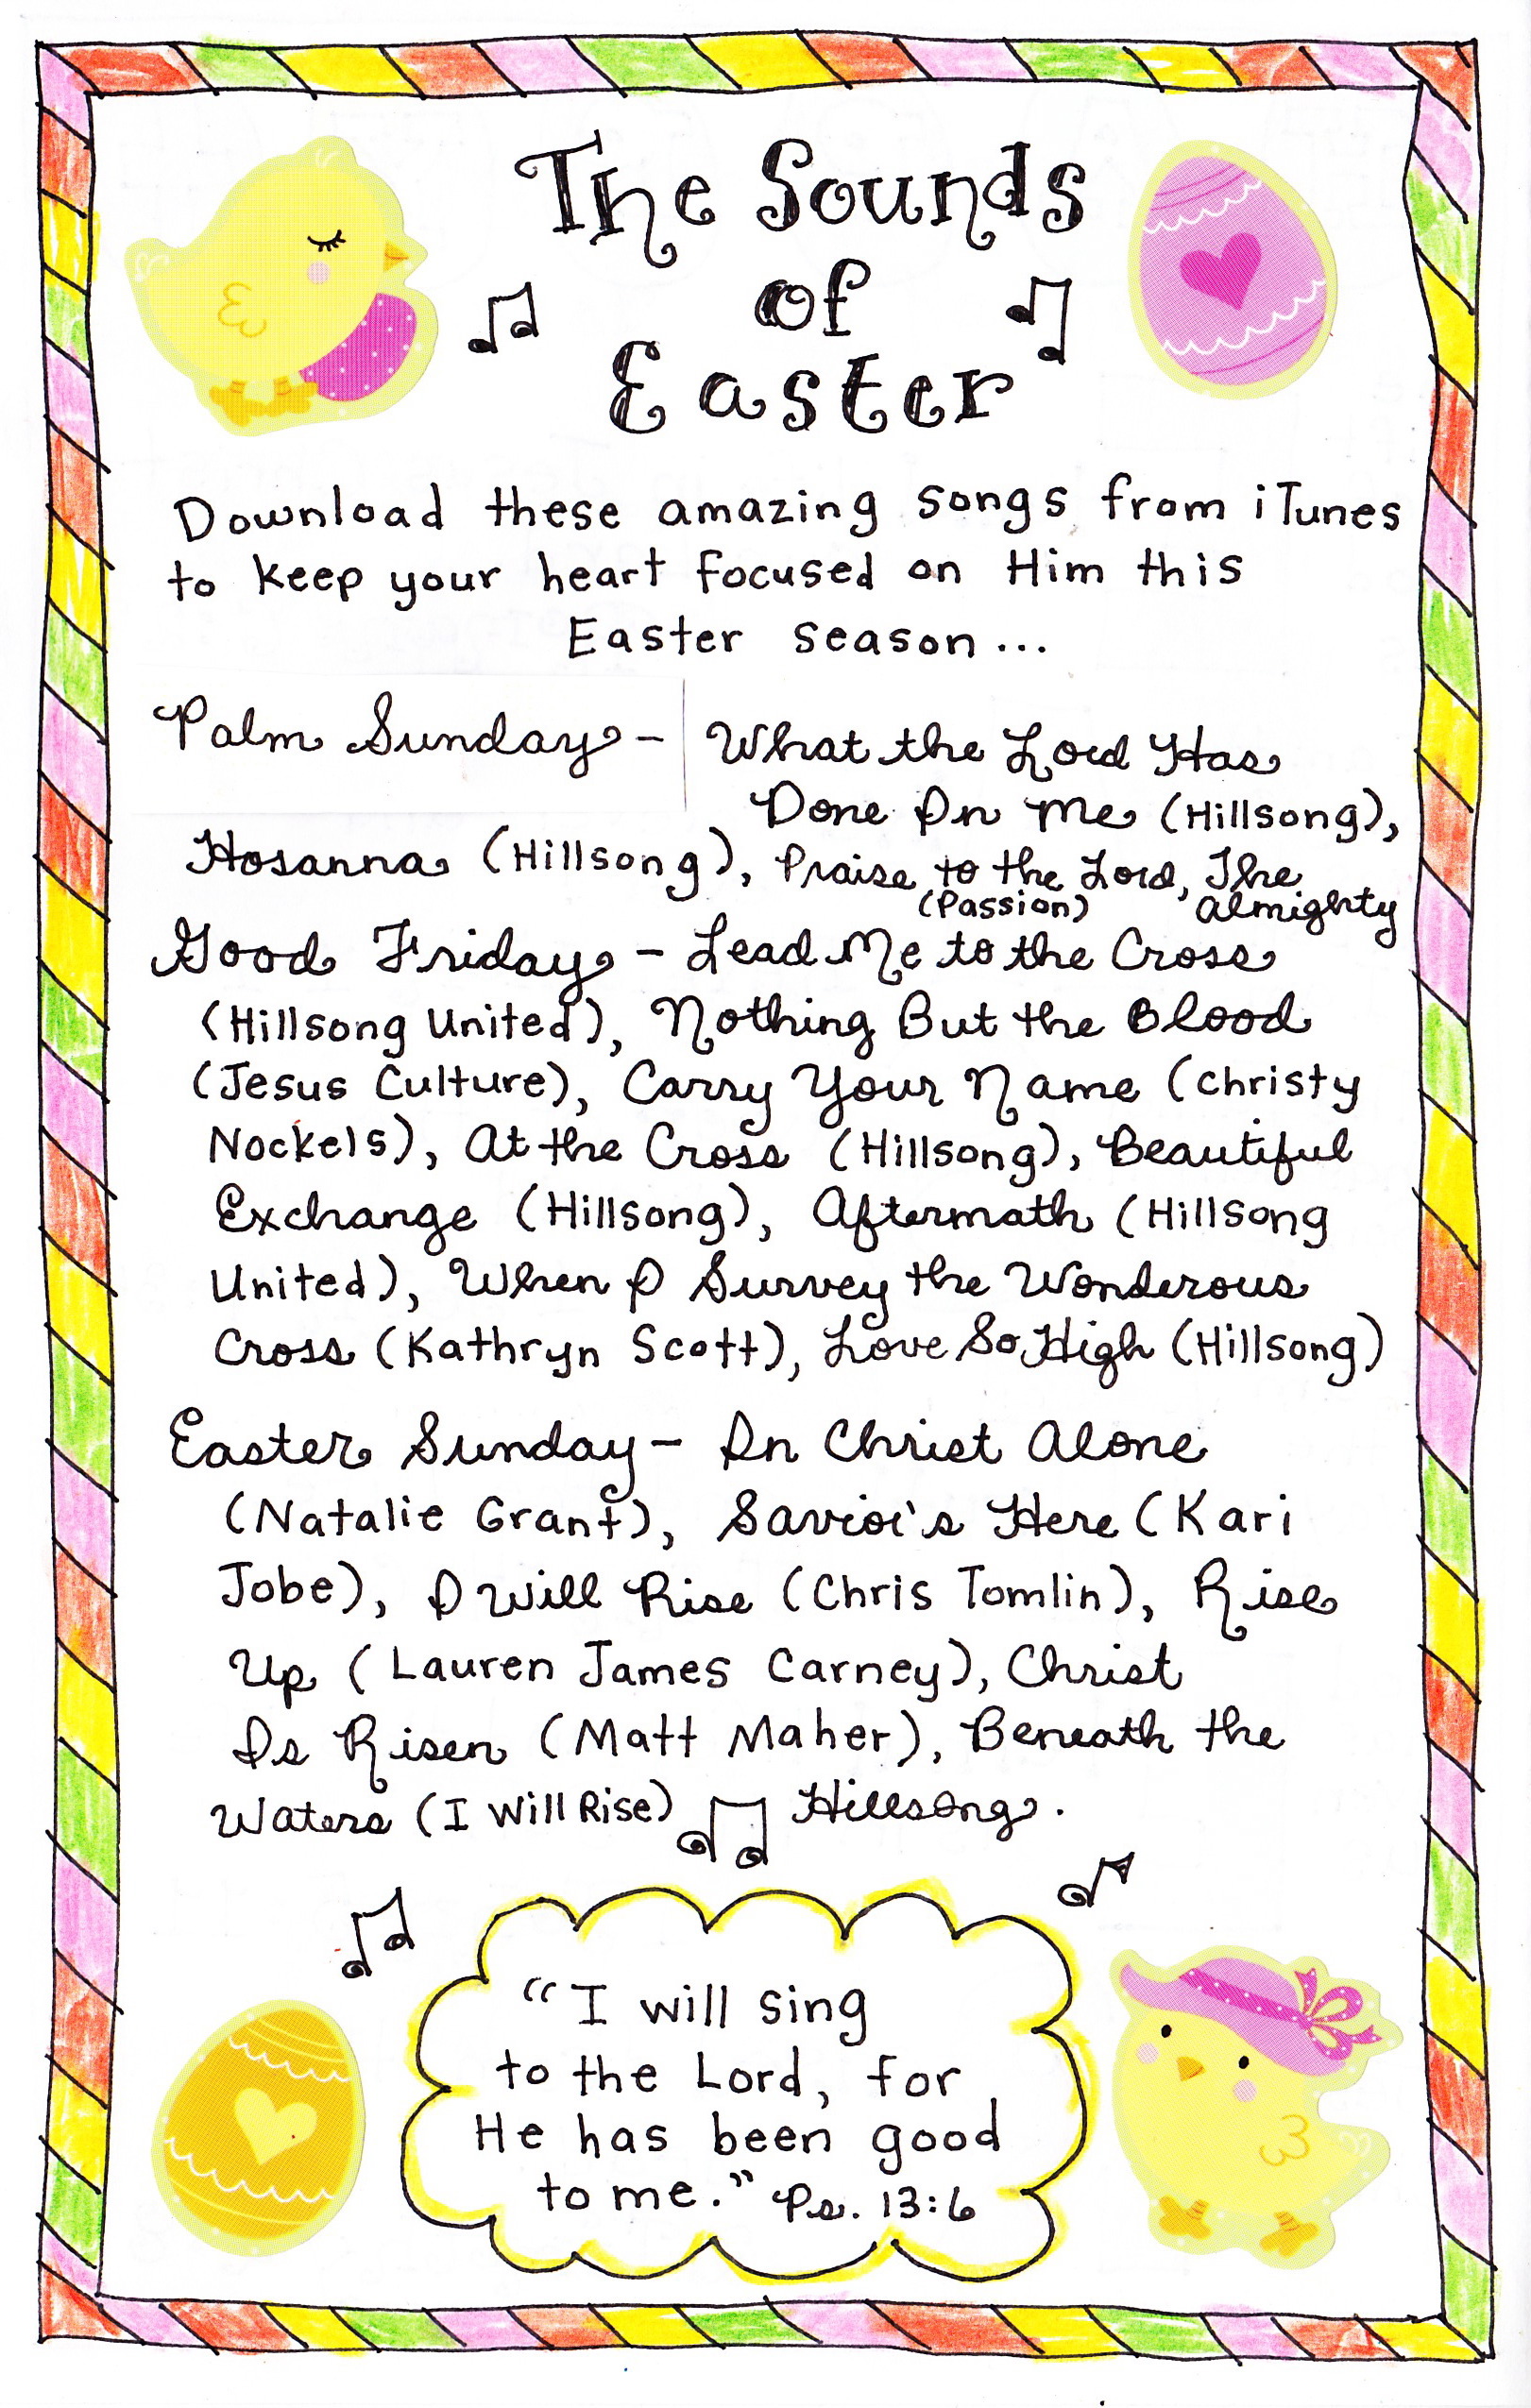 The Sounds
of
Easter
Download these amazing songs from iTunes
to keep your heart focused on Him this
Easter season...
Palm Sunday - What the Lord Has
Done In Me (Hillsong),
Hosanna (Hillsong), Praise to the Lord, The
(Passion) Almighty
Good Friday - Lead Me to the Cross
(Hillsong United), Nothing But the Blood
(Jesus Culture), Carry Your Name (Christy
Nockels), At the Cross (Hillsong), Beautiful
Exchange (Hillsong), Aftermath (Hillsong
United), When I Survey the Wonderous
Cross (Kathryn Scott), Love So High (Hillsong)
Easter Sunday - In Christ Alone
(Natalie Grant), Savior's Here (Kari
Jobe), I Will Rise (Chris Tomlin), Rise
Up (Lauren James Carney), Christ
Is Risen (Matt Maher), Beneath the
Waters (I Will Rise) Hillsong.
"I will sing
to the Lord, for
He has been good
to me." Ps. 13:6